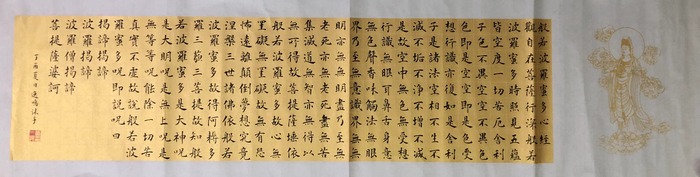 般若波羅蜜多心經
觀自在菩薩行深般若
波羅蜜多時照見五蘊
皆空度一切苦厄舍利
子色不異空空不異色
色即是空空即是色受
想行識亦復如是舍利
子是諸法空相不生不
滅不垢不淨不增不減
是故空中無色無受想
行識無眼耳鼻舌身意
無色聲香味觸法無眼
界乃至無意識界無無
明亦無無明盡乃至無
老死亦無老死盡無苦
集滅道無智亦無得以
無所得故菩提薩埵依
般若波羅蜜多故心無
罣礙無罣礙故無有恐
怖遠離顛倒夢想究竟
涅槃三世諸佛依般若
波羅蜜多故得阿耨多
羅三藐三菩提故知般
若波羅蜜多是大神呪
是大明呪是無上呪是
無等等呪能除一切苦
真實不虛故說般若波
羅蜜多呪即說呪曰
揭諦揭諦
波羅揭諦
波羅僧揭諦
菩提薩婆訶
丁酉夏日